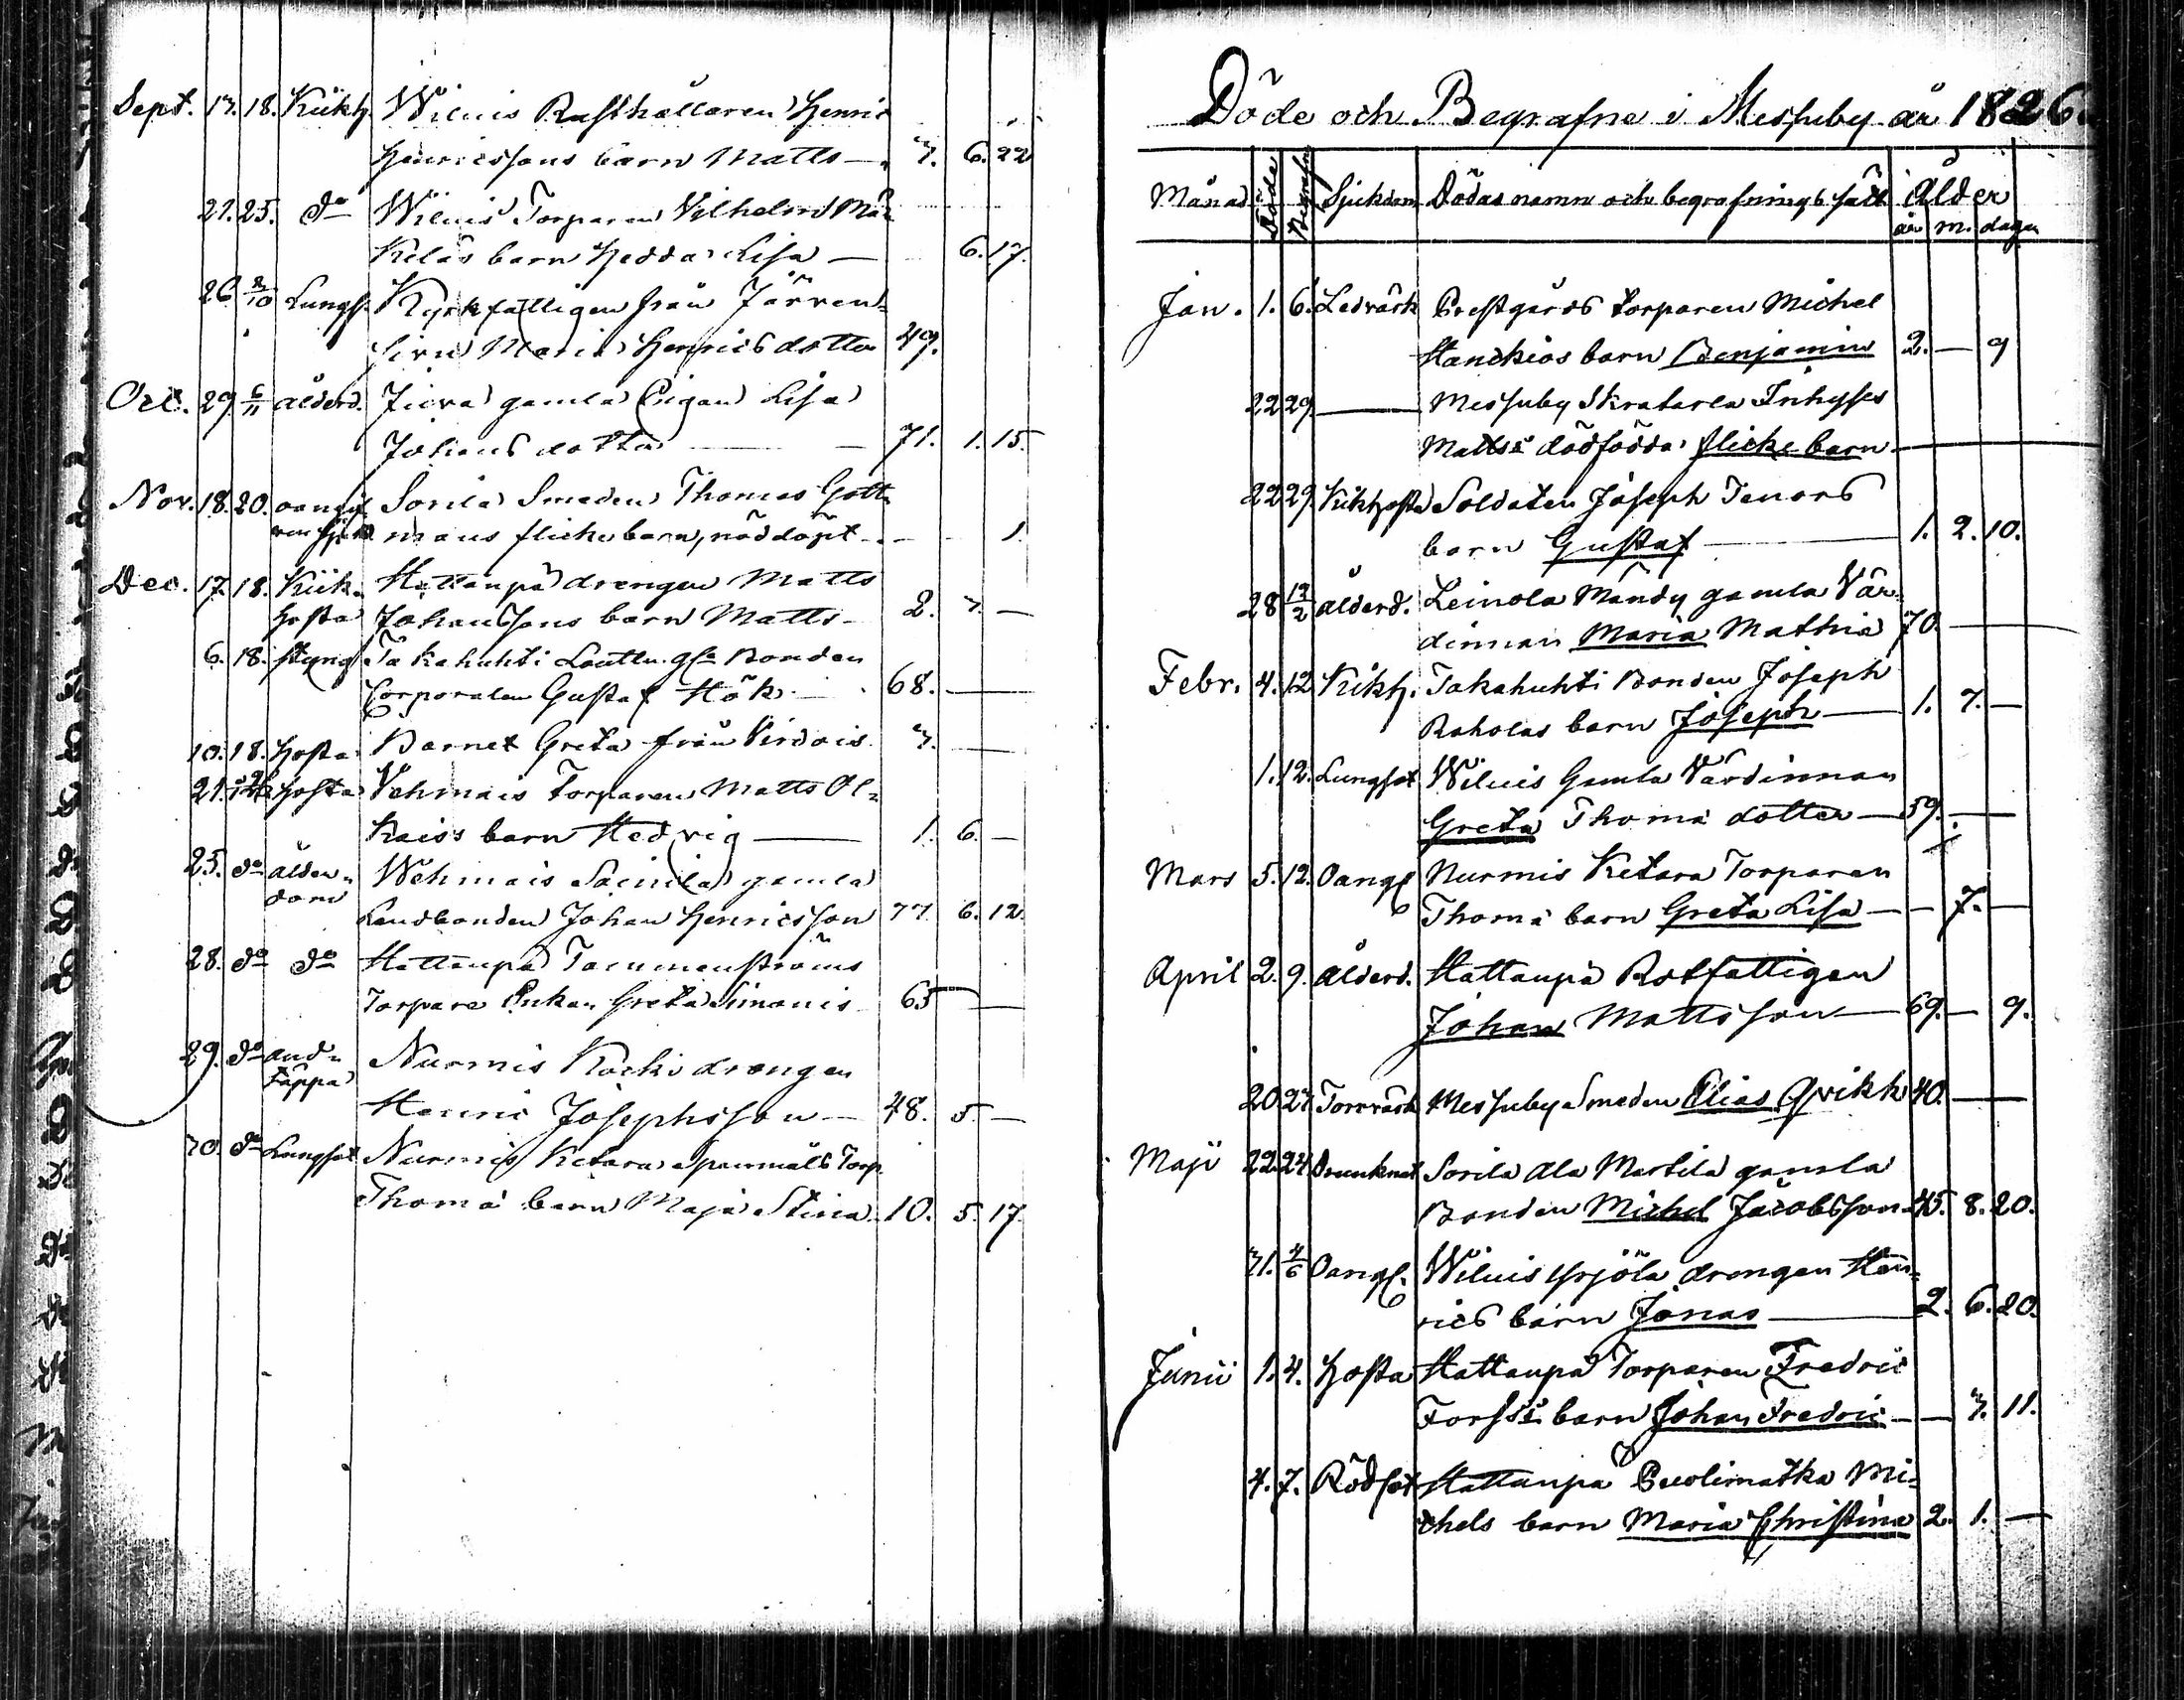 Sept. 17. 18. Kiikh. Wilnis Rusthållaren Henric
Henricssons barn Matts — 7. 6. 22
21. 25. do Wilnis Torparen Vilhelm Mä
Keläs barn Hedda Lisa — 6. 17.
26. 2/10 Lungs. Kyrkfattigen från Järven-
sivu Maria Henricsdotter 49.
Oct. 29 6/11 ålderd. Juvra gamla Pigan Lisa
Johans dotter — 71. 1. 15.
Nov. 18. 20. oangif Sorila Smeden Thomas Gott-
mans flicke barn, nöddöpt — 1.
Dec. 17. 18. Kiik- Hattanpä drengen Matts
hosta Johanssons barn Matts — 2. 7. —
6. 18. styng Takahuhti Lauttu gfa Bonden
Corporalen Gustaf Hök — 68. —
10. 18. hosta Barnet Greta från Virdois 3. —
21. 26 hosta Vehmais Torparen Matts Ol-
Kaiss barn Hedvig — 1. 6. —
25. do ålder- Wehmais Sainila gamla
dom Landbonden Johan Henricsson 77. 6. 12.
28. do do Hattanpä Tammenströms
Torpare Enkan Greta Simonis 65 —
29. do and- Nurmis Kocki drengen
täppa Henric Josephsson — 48. 5. —
30. do Lungsot Nurmis Ketara Spannmåls Torp.
Thomä barn Maja Stina 10. 5. 17.
Döde och Begrafne i Messuby år 1826
Månad Döde Begrafn Sjukdom Dödas namn och begrafnings sätt Ålder
år m. dagar
Jan. 1. 6. Ledvärk Prestgårds torparen Michel
Hanckios barn Benjamin 2. — 9
22 29 — Messuby Skratarla Inhyses
Matts's dödfödda flicke barn —
22 29. Kikhosta Soldaten Joseph Tenors
barn Gustaf — 1. 2. 10.
28 12/2 ålderd. Leinola Mändy gamla Vär-
dinnan Maria Mathiä 70. —
Febr. 4. 12 Kikh. Takahuhti Bonden Joseph
Raholas barn Joseph — 1. 7. —
1. 12. Lungsot Wilnis Gamla Värdinnan
Greta Thomä dotter — 59. —
Mars 5. 12. Oangf. Nurmis Ketara Torparen
Thomä barn Greta Lisa — — 7. —
April 2. 9. ålderd. Hattanpä Rotfattigen
Johan Mattsson — 69. — 9.
20 27 Torrvärk Messuby Smeden Elias Qvikk 40. —
Maji 22 24 Drunknat Sorila Ala Martila gamla
Bonden Michel Jacobsson 45. 8. 20.
31. 4/6 Oangf. Wilnis Yrjölä drengen Hen-
rics barn Jonas — 2. 6. 20.
Junii 1. 4. hosta Hattanpä Torparen Fredric
Forss's barn Johan Fredric — — 7. 11.
4. 7. Rödsot Hattanpä Puolimatka Mi-
chels barn Maria Christina 2. 1. —